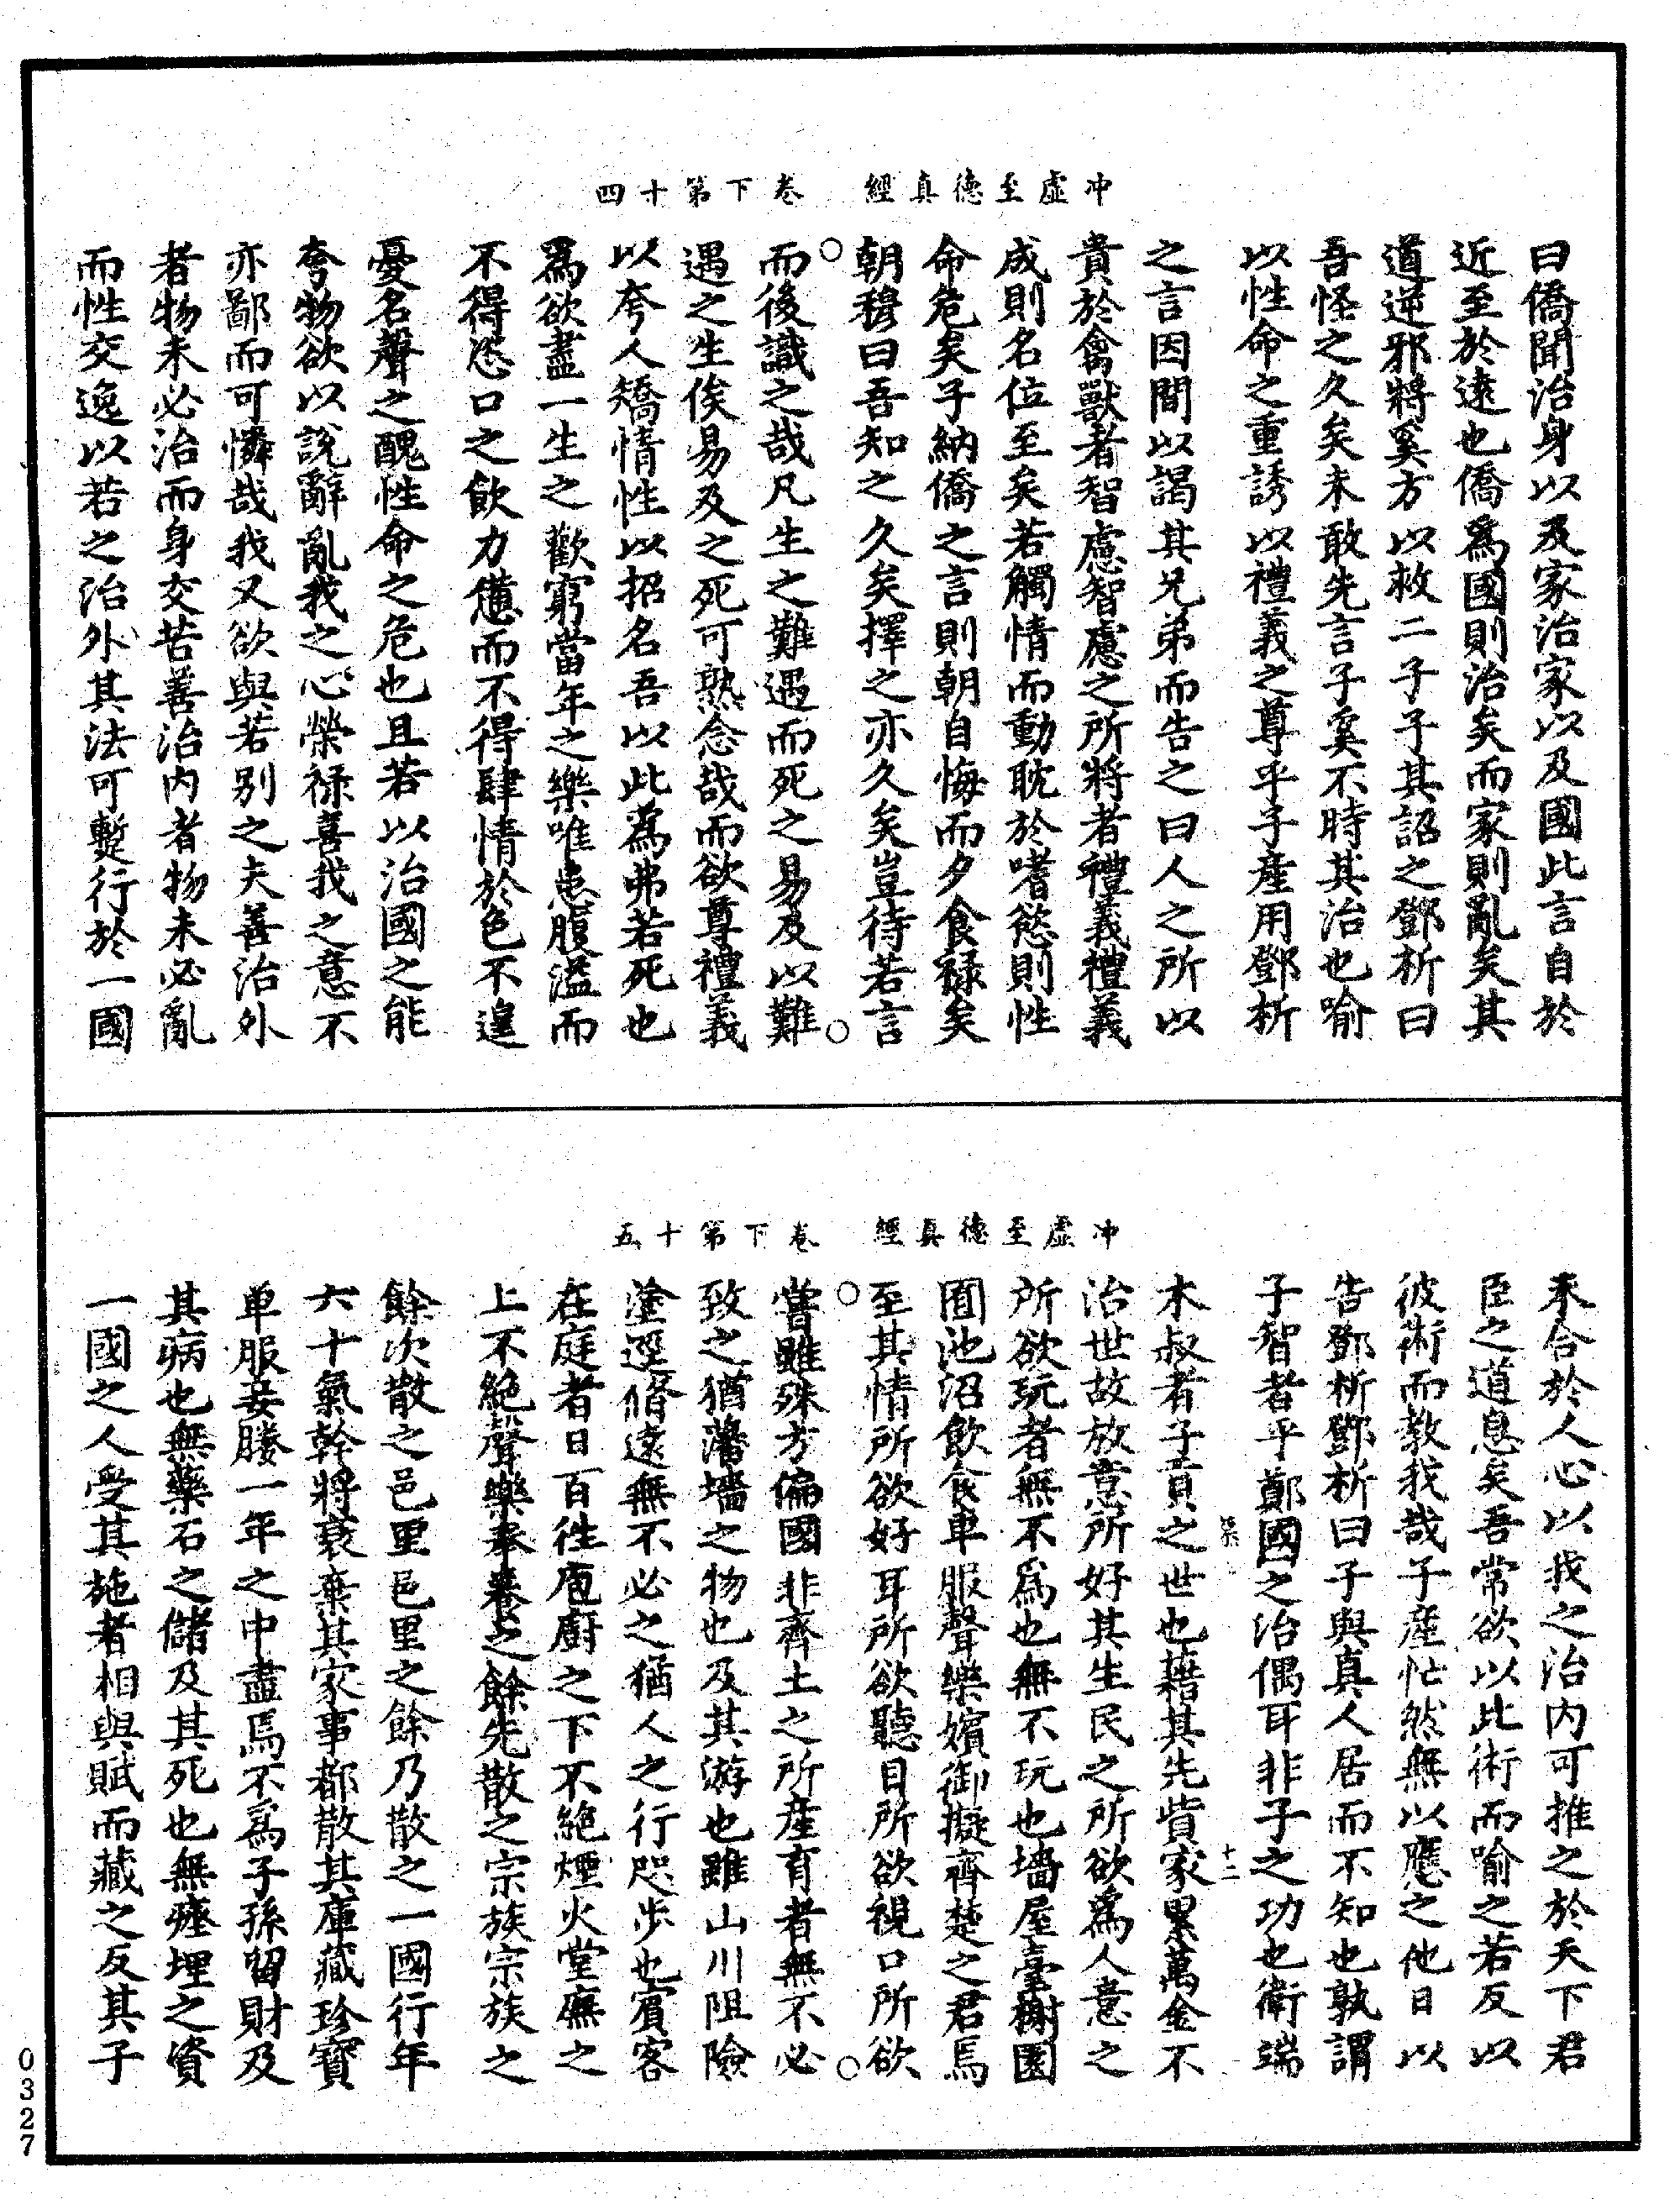 冲虛至德真經　卷下第十四
曰僑聞治身以及家治家以及國此言自於
近至於遠也僑為國則治矣而家則亂矣其
道逆邪將奚方以救二子子其詔之鄧析曰
吾怪之久矣未敢先言子奚不時其治也喻
以性命之重誘以禮義之尊乎子產用鄧析
之言因間以謁其兄弟而告之曰人之所以
貴於禽獸者智慮智慮之所將者禮義禮義
成則名位至矣若觸情而動耽於嗜慾則性
命危矣子納僑之言則朝自悔而夕食祿矣
朝穆曰吾知之久矣擇之亦久矣豈待若言
而後識之哉凡生之難遇而死之易及以難
遇之生俟易及之死可孰念哉而欲尊禮義
以夸人矯情性以招名吾以此為弗若死也
為欲盡一生之歡窮當年之樂唯患腹溢而
不得恣口之飲力憊而不得肆情於色不遑
憂名聲之醜性命之危也且若以治國之能
夸物欲以說辭亂我之心榮祿喜我之意不
亦鄙而可憐哉我又欲與若別之夫善治外
者物未必治而身交苦善治內者物未必亂
而性交逸以若之治外其法可蹔行於一國
冲虛至德真經　卷下第十五
未合於人心以我之治內可推之於天下君
臣之道息矣吾常欲以此術而喻之若反以
彼術而教我哉子產忙然無以應之他日以
告鄧析鄧析曰子與真人居而不知也孰謂
子智者乎鄭國之治偶耳非子之功也衛端
十二
木叔者子貢之世也藉其先貲家累萬金不
治世故放意所好其生民之所欲為人意之
所欲玩者無不為也無不玩也墻屋臺榭園
囿池沼飲食車服聲樂嬪御擬齊楚之君焉
至其情所欲好耳所欲聽目所欲視口所欲
嘗雖殊方偏國非齊土之所產育者無不必
致之猶藩墻之物也及其游也雖山川阻險
塗逕脩遠無不必之猶人之行咫步也賓客
在庭者日百往庖廚之下不絕煙火堂廡之
上不絕聲樂奉養之餘先散之宗族宗族之
餘次散之邑里邑里之餘乃散之一國行年
六十氣幹將衰棄其家事都散其庫藏珍寶
車服妾媵一年之中盡焉不為子孫留財及
其病也無藥石之儲及其死也無瘞埋之資
一國之人受其施者相與賦而藏之反其子
0327